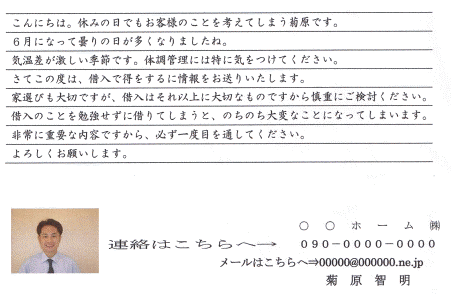 こんにちは。休みの日でもお客様のことを考えてしまう菊原です。
６月になって曇りの日が多くなりましたね。
気温差が激しい季節です。体調管理には特に気をつけてください。
さてこの度は、借入で得をするに情報をお送りいたします。
家選びも大切ですが、借入はそれ以上に大切なものですから慎重にご検討ください。
借入のことを勉強せずに借りてしまうと、のちのち大変なことになってしまいます。
非常に重要な内容ですから、必ず一度目を通してください。
よろしくお願いします。
〇 〇 ホーム ㈱
連絡はこちらへ→ 090-0000-0000
メールはこちらへ⇒00000@000000.ne.jp
菊 原 智 明